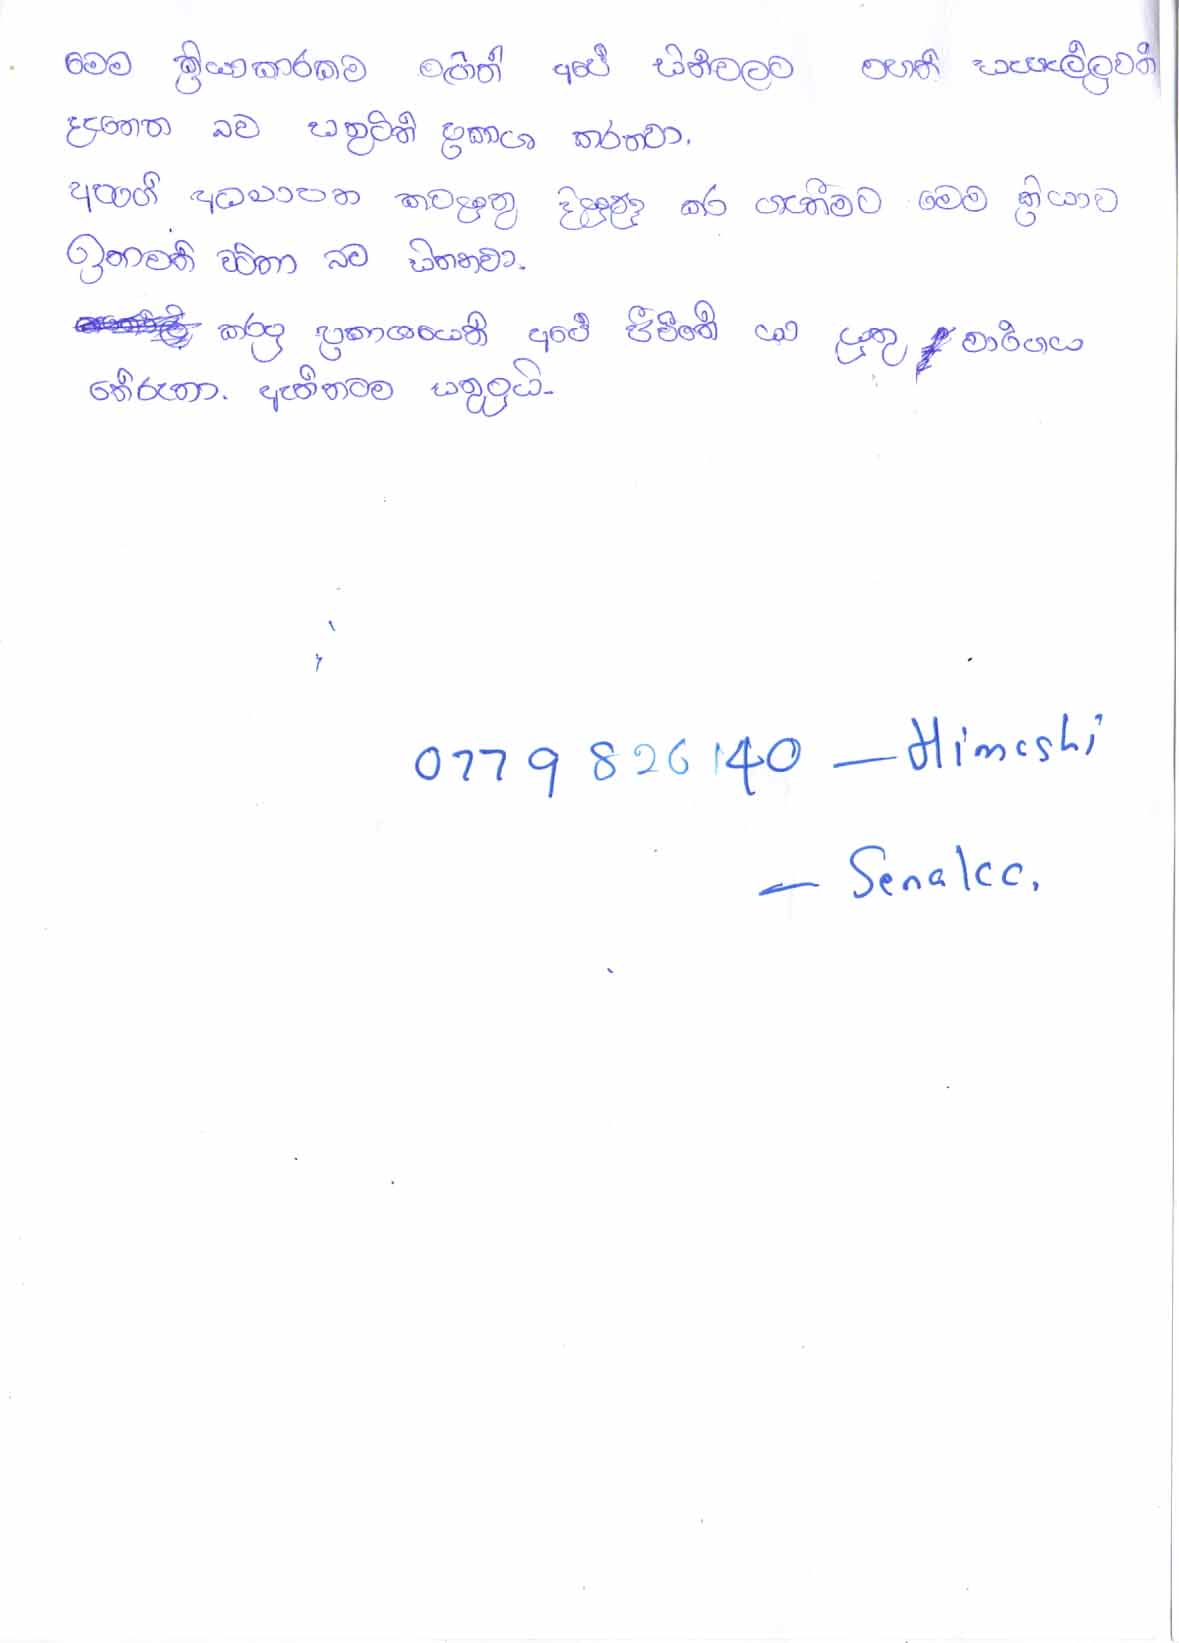 මෙම ක්‍රියාකාරකම තුලින් අපේ සිත්වලට මහත් සැහැල්ලුවක්
දැනෙන බව සතුටින් ප්‍රකාශ කරනවා.
අපගේ අධ්‍යාපන කටයුතු දියුණු කර ගැනීමට මෙම ක්‍රියාව
ඉතාමත් වටිනා බව සිතනවා.
කරපු ප්‍රකාශයෙන් අපේ ජීවිතේ යා යුතු මාර්ගය
තේරුනා. ඇත්තටම සතුටුයි.
0779826140 — Himeshi
— Senalcc.